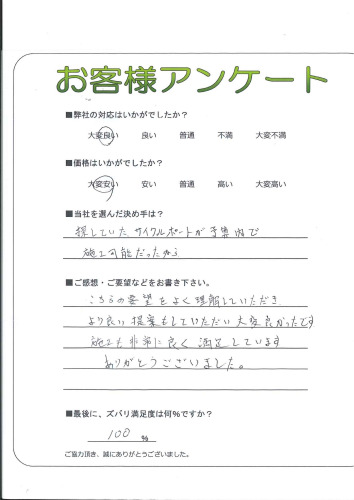 お客様アンケート
■弊社の対応はいかがでしたか？
大変良い 良い 普通 不満 大変不満
■価格はいかがでしたか？
大変安い 安い 普通 高い 大変高い
■当社を選んだ決め手は？
探していたサイクルポートが予算内で
施工可能だったから
■ご感想・ご要望などをお書き下さい。
こちらの要望をよく理解していただき、
より良い提案もしていただい大変良かったです
施工も非常に良く満足しています
ありがとうございました。
■最後に、ズバリ満足度は何％ですか？
100 ％
ご協力頂き、誠にありがとうございました。